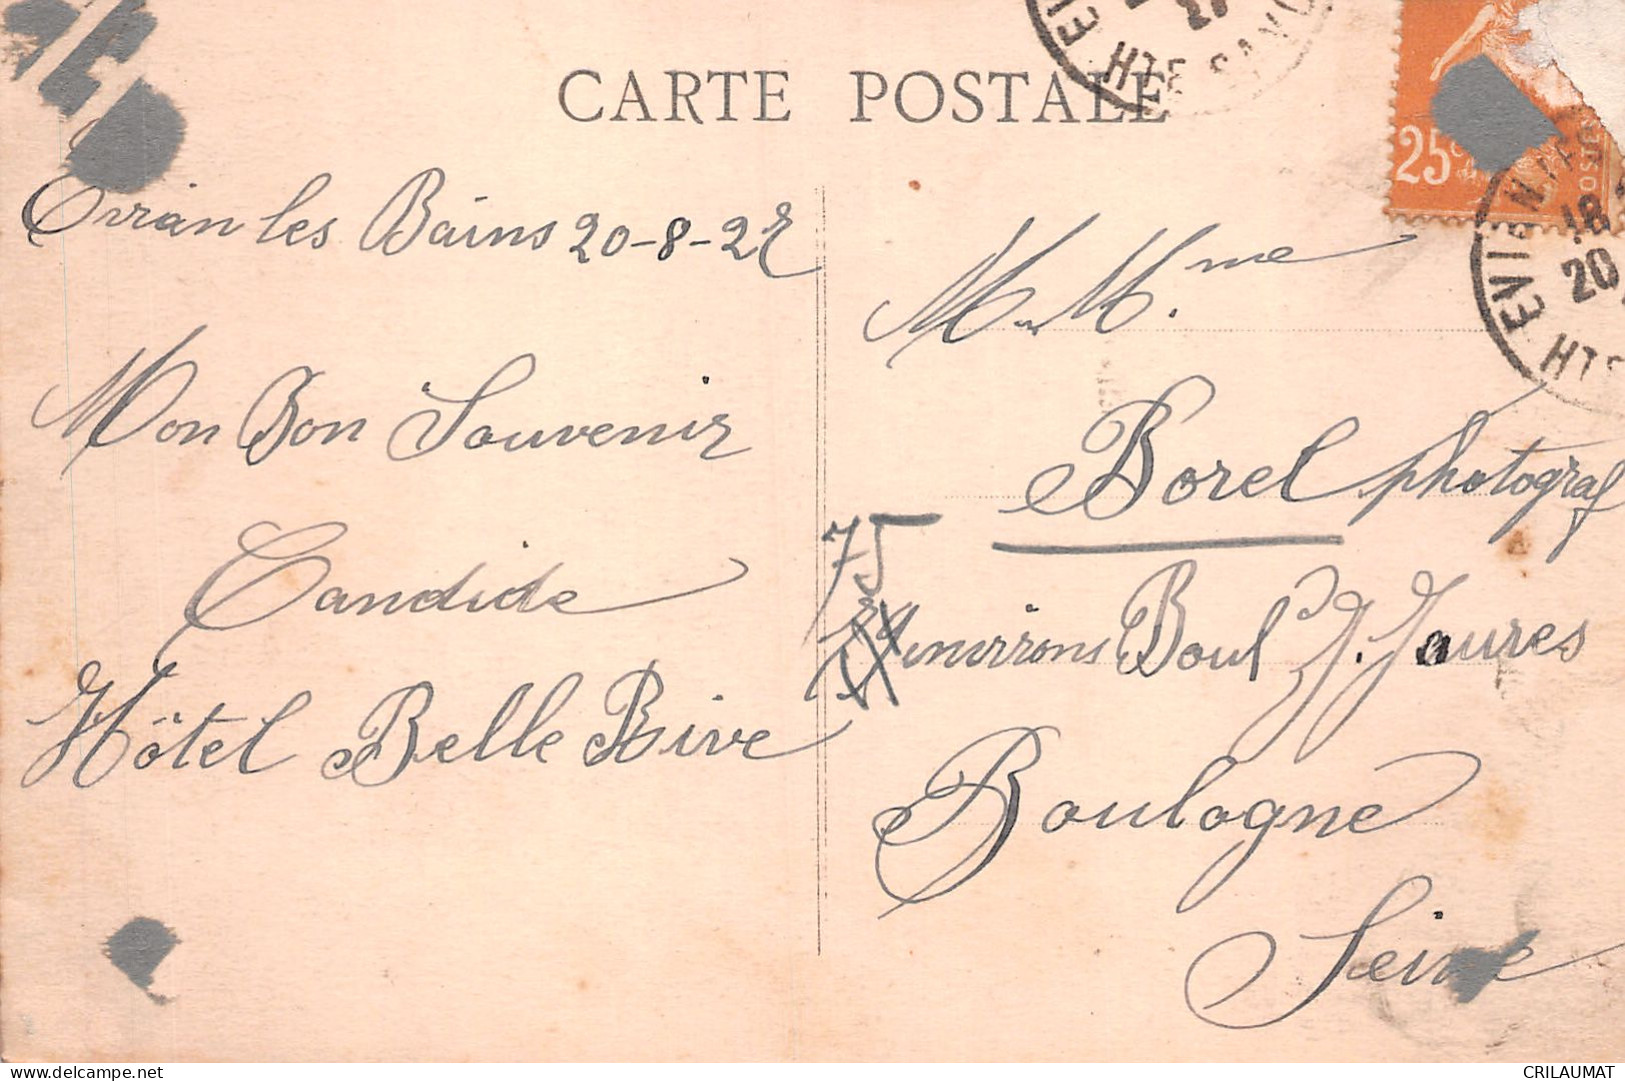 CARTE POSTALE
Evian les Bains 20-8-27
Mon Bon Souvenir
Candide
Hôtel Belle Rive
M. M.me
Borel photograf
75
environs Boul J. Jaures
Boulogne
Seine
25c
POSTES
EVIAN
18
20
HTE
27
HTE SAV
CRILAUMAT